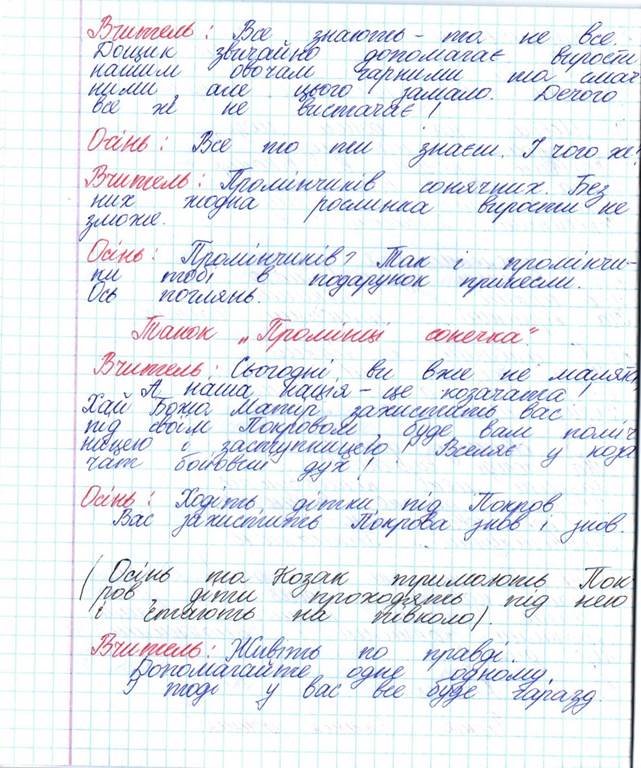 Вчитель: Все знають – та не все.
Дощик звичайно допомагає вирости
нашим овочам гарними та смач
ними, але цього замало. Дечого
все ж не вистачає!
Осінь: Все то ти знаєш. І чого же?
Вчитель: Промінчиків сонячних. Без
них жодна рослинка вирости не
зможе.
Осінь: Промінчиків? Так і промінчи-
ки тобі в подарунок принесли.
Ось поглянь.
Танок „Промінці сонечка"
Вчитель: Сьогодні ви вже не малята
А наша нація – це козачата!
Хай Божа Матір захистить вас
під своїм Покровом буде вам поміч
ницею і заступницею! Вселяє у коза
чат бойовий дух!
Осінь: Ходіть, дітки, під Покров
Вас захистить Покрова знов і знов.
(Осінь та Козак тримають Пок
ров, діти проходять під нею
і стають на півколо).
Вчитель: Живіть по правді.
Допомагайте одне одному,
І тоді у вас все буде гаразд.